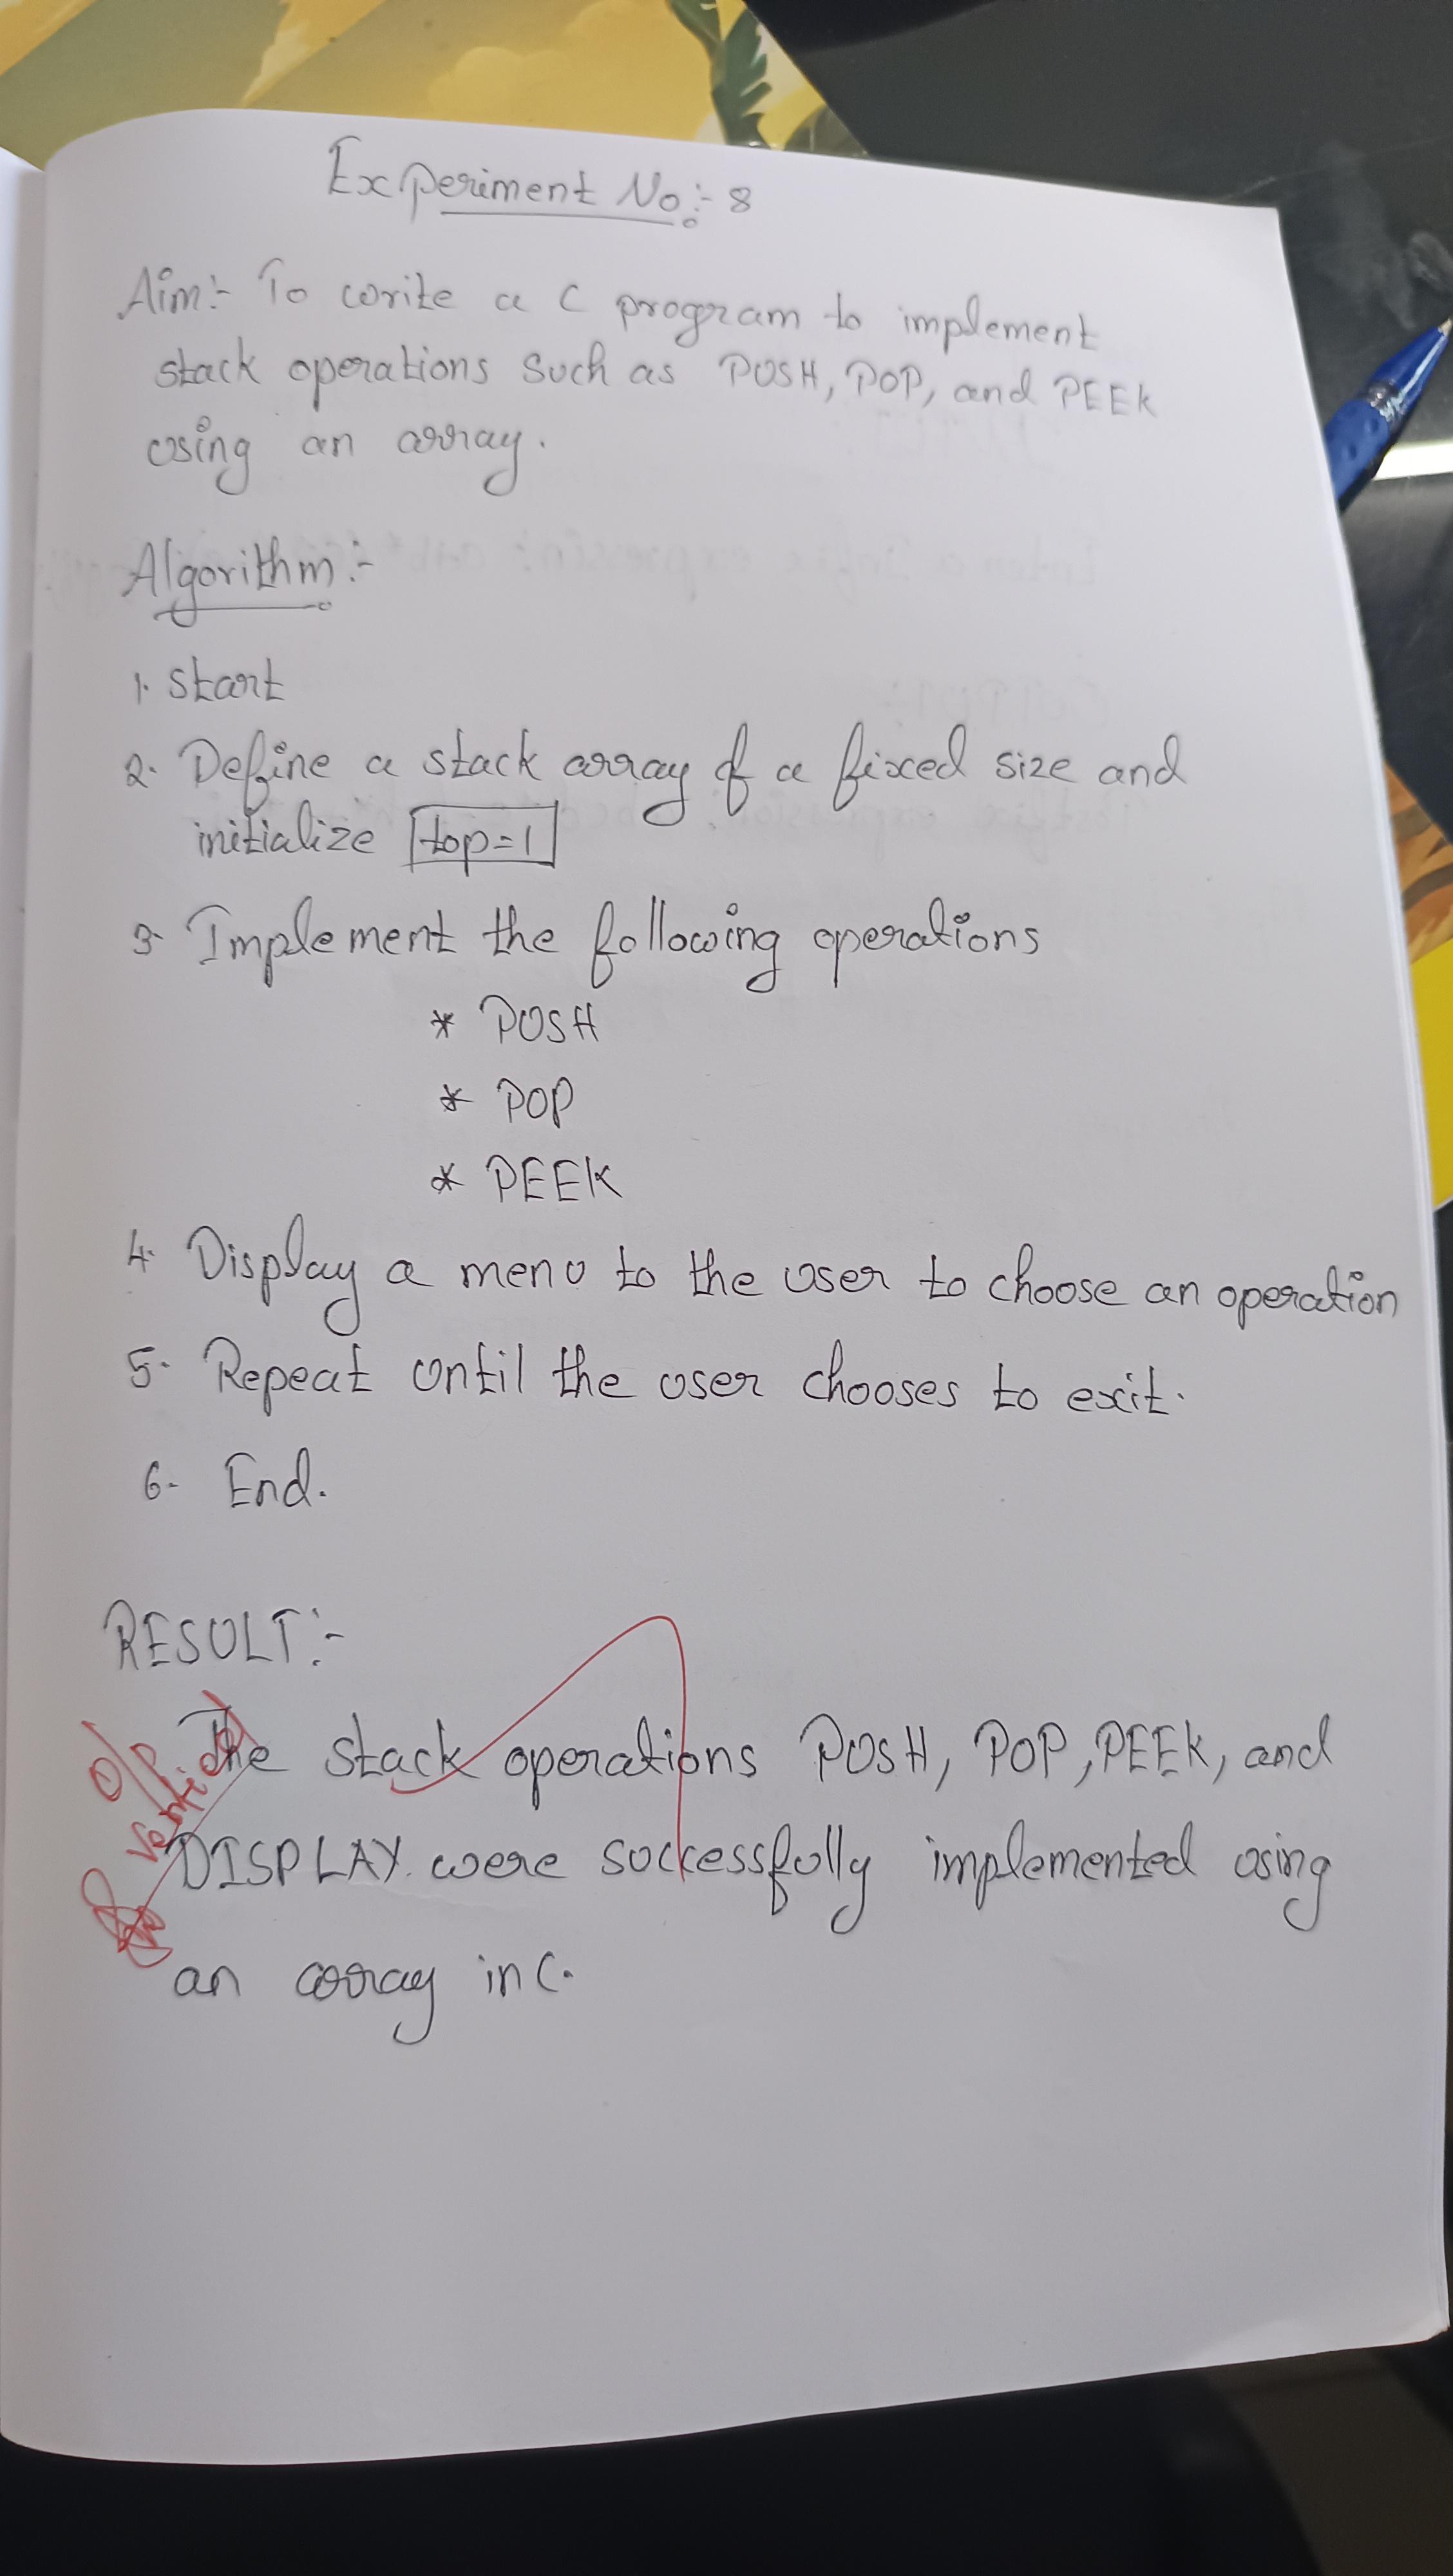 Experiment No:- 8
Aim:- To write a C program to implement
stack operations such as PUSH, POP, and PEEK
using an array.
Algorithm:-
1. Start
2. Define a stack array of a fixed size and
initialize top=1
3. Implement the following operations
* PUSH
* POP
* PEEK
4. Display a menu to the user to choose an operation
5. Repeat until the user chooses to exit.
6. End.
RESULT:-
The stack operations PUSH, POP, PEEK, and
O/P verified
DISPLAY. were successfully implemented using
an array in C.